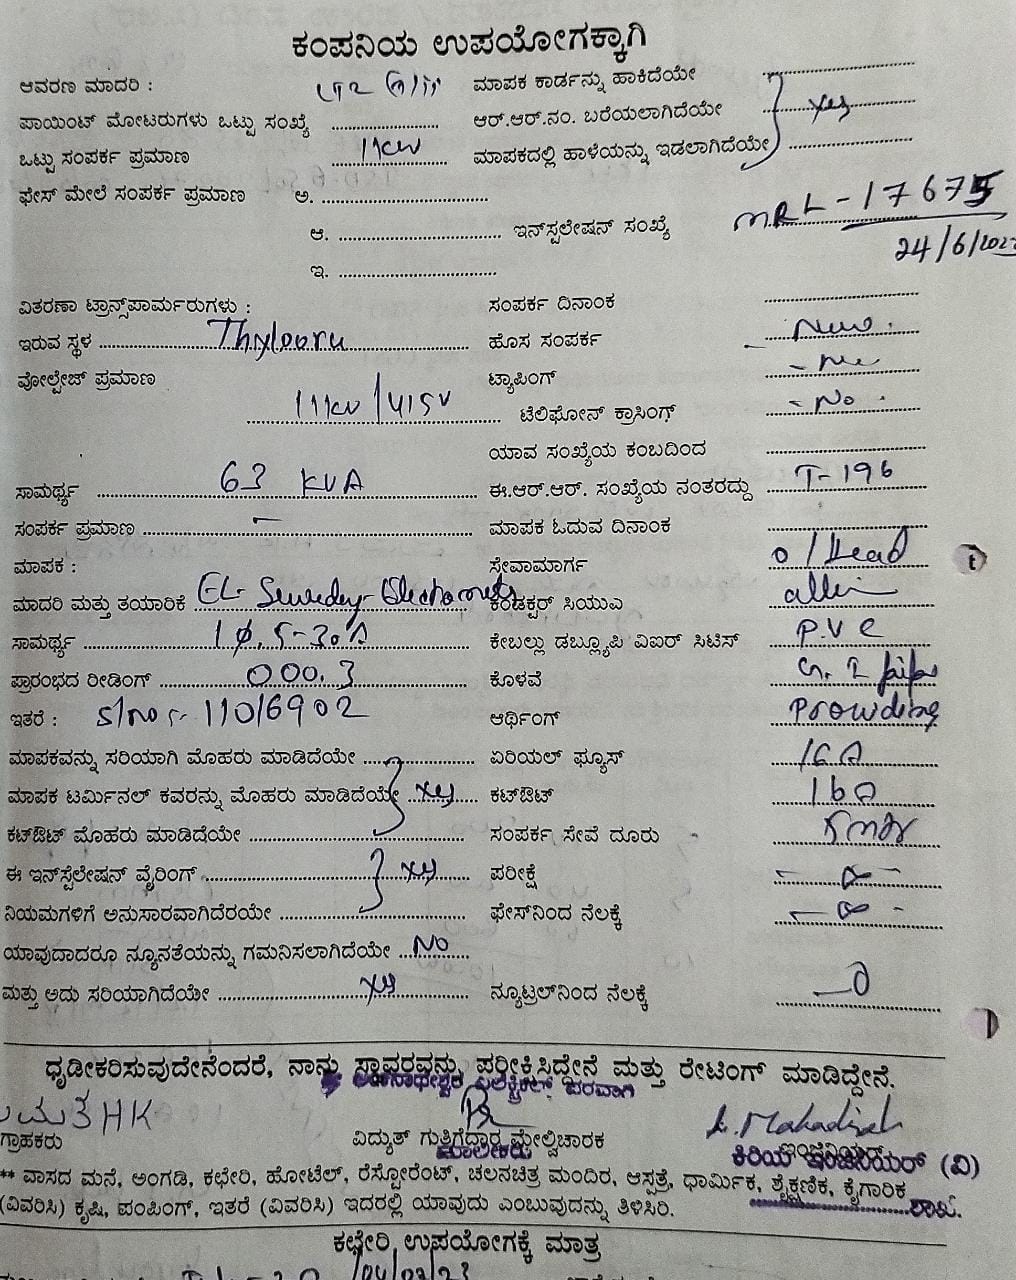 ಕಂಪನಿಯ ಉಪಯೋಗಕ್ಕಾಗಿ
ಆವರಣ ಮಾದರಿ : ಮಾಪಕ ಕಾರ್ಡನ್ನು ಹಾಕಿದೆಯೇ ....................
ಪಾಯಿಂಟ್ ಮೋಟರುಗಳು ಒಟ್ಟು ಸಂಖ್ಯೆ .................... ಆರ್.ಆರ್.ನಂ. ಬರೆಯಲಾಗಿದೆಯೇ yes
ಒಟ್ಟು ಸಂಪರ್ಕ ಪ್ರಮಾಣ 11kw ಮಾಪಕದಲ್ಲಿ ಹಾಳೆಯನ್ನು ಇಡಲಾಗಿದೆಯೇ ....................
ಫೇಸ್ ಮೇಲೆ ಸಂಪರ್ಕ ಪ್ರಮಾಣ ಅ. ....................
ಆ. .................... ಇನ್‌ಸ್ಟಲೇಷನ್ ಸಂಖ್ಯೆ MRL-17675
24/6/202
ಇ. ....................
ವಿತರಣಾ ಟ್ರಾನ್ಸ್‌ಪಾರ್ಮರುಗಳು : ಸಂಪರ್ಕ ದಿನಾಂಕ ....................
ಇರುವ ಸ್ಥಳ Thylooru ಹೊಸ ಸಂಪರ್ಕ New
ವೋಲ್ಟೇಜ್ ಪ್ರಮಾಣ ಟ್ಯಾಪಿಂಗ್
11kv/415V ಟೆಲಿಫೋನ್ ಕ್ರಾಸಿಂಗ್ - No
ಯಾವ ಸಂಖ್ಯೆಯ ಕಂಬದಿಂದ ....................
ಸಾಮರ್ಥ್ಯ 63 KVA ಈ.ಆರ್.ಆರ್. ಸಂಖ್ಯೆಯ ನಂತರದ್ದು T-196
ಸಂಪರ್ಕ ಪ್ರಮಾಣ - ಮಾಪಕ ಓದುವ ದಿನಾಂಕ ....................
ಮಾಪಕ : ಸೇವಾಮಾರ್ಗ o/Head
ಮಾದರಿ ಮತ್ತು ತಯಾರಿಕೆ ಕಂಡಕ್ಟರ್ ಸಿಯುಎ
ಸಾಮರ್ಥ್ಯ 1φ, 5-30A ಕೇಬಲ್ಲು ಡಬ್ಲ್ಯೂಪಿ ವಿಐರ್ ಸಿಟಿಸ್ P.V.C
ಪ್ರಾರಂಭದ ರೀಡಿಂಗ್ 000.3 ಕೊಳವೆ G.I pipe
ಇತರೆ : S/no:- 11016902 ಆರ್ಥಿಂಗ್ Prowding
ಮಾಪಕವನ್ನು ಸರಿಯಾಗಿ ಮೊಹರು ಮಾಡಿದೆಯೇ .................... ಏರಿಯಲ್ ಫ್ಯೂಸ್ 16A
ಮಾಪಕ ಟರ್ಮಿನಲ್ ಕವರನ್ನು ಮೊಹರು ಮಾಡಿದೆಯೇ yes ಕಟ್ಔಟ್ 16A
ಕಟ್ಔಟ್ ಮೊಹರು ಮಾಡಿದೆಯೇ .................... ಸಂಪರ್ಕ ಸೇವೆ ದೂರು
ಈ ಇನ್‌ಸ್ಟೆಲೇಷನ್ ವೈರಿಂಗ್ yes ಪರೀಕ್ಷೆ - ∞ -
ನಿಯಮಗಳಿಗೆ ಅನುಸಾರವಾಗಿದೆರಯೇ .................... ಫೇಸ್‌ನಿಂದ ನೆಲಕ್ಕೆ - ∞ -
ಯಾವುದಾದರೂ ನ್ಯೂನತೆಯನ್ನು ಗಮನಿಸಲಾಗಿದೆಯೇ No
ಮತ್ತು ಅದು ಸರಿಯಾಗಿದೆಯೇ yes ನ್ಯೂಟ್ರಲ್‌ನಿಂದ ನೆಲಕ್ಕೆ -0
ಧೃಡೀಕರಿಸುವುದೇನೆಂದರೆ, ನಾನು ಸ್ಥಾವರವನ್ನು ಪರೀಕ್ಷಿಸಿದ್ದೇನೆ ಮತ್ತು ರೇಟಿಂಗ್ ಮಾಡಿದ್ದೇನೆ.
ಎಲೆಕ್ಟ್ರಿಕಲ್ಸ್ ಪರವಾಗಿ
HK
ಗ್ರಾಹಕರು ವಿದ್ಯುತ್ ಗುತ್ತಿಗೆದ್ದಾರ ಮೇಲ್ವಿಚಾರಕ ಇಂಜಿನಿಯರ್
ಮಾಲೀಕರು ಕಿರಿಯ ಇಂಜಿನಿಯರ್ (ವಿ)
** ವಾಸದ ಮನೆ, ಅಂಗಡಿ, ಕಛೇರಿ, ಹೋಟೆಲ್, ರೆಸ್ಟೋರೆಂಟ್, ಚಲನಚಿತ್ರ ಮಂದಿರ, ಆಸ್ಪತ್ರೆ, ಧಾರ್ಮಿಕ, ಶೈಕ್ಷಣಿಕ, ಕೈಗಾರಿಕ
(ವಿವರಿಸಿ) ಕೃಷಿ, ಪಂಪಿಂಗ್, ಇತರೆ (ವಿವರಿಸಿ) ಇದರಲ್ಲಿ ಯಾವುದು ಎಂಬುವುದನ್ನು ತಿಳಿಸಿರಿ. ಶಾಖೆ.
ಕಛೇರಿ ಉಪಯೋಗಕ್ಕೆ ಮಾತ್ರ